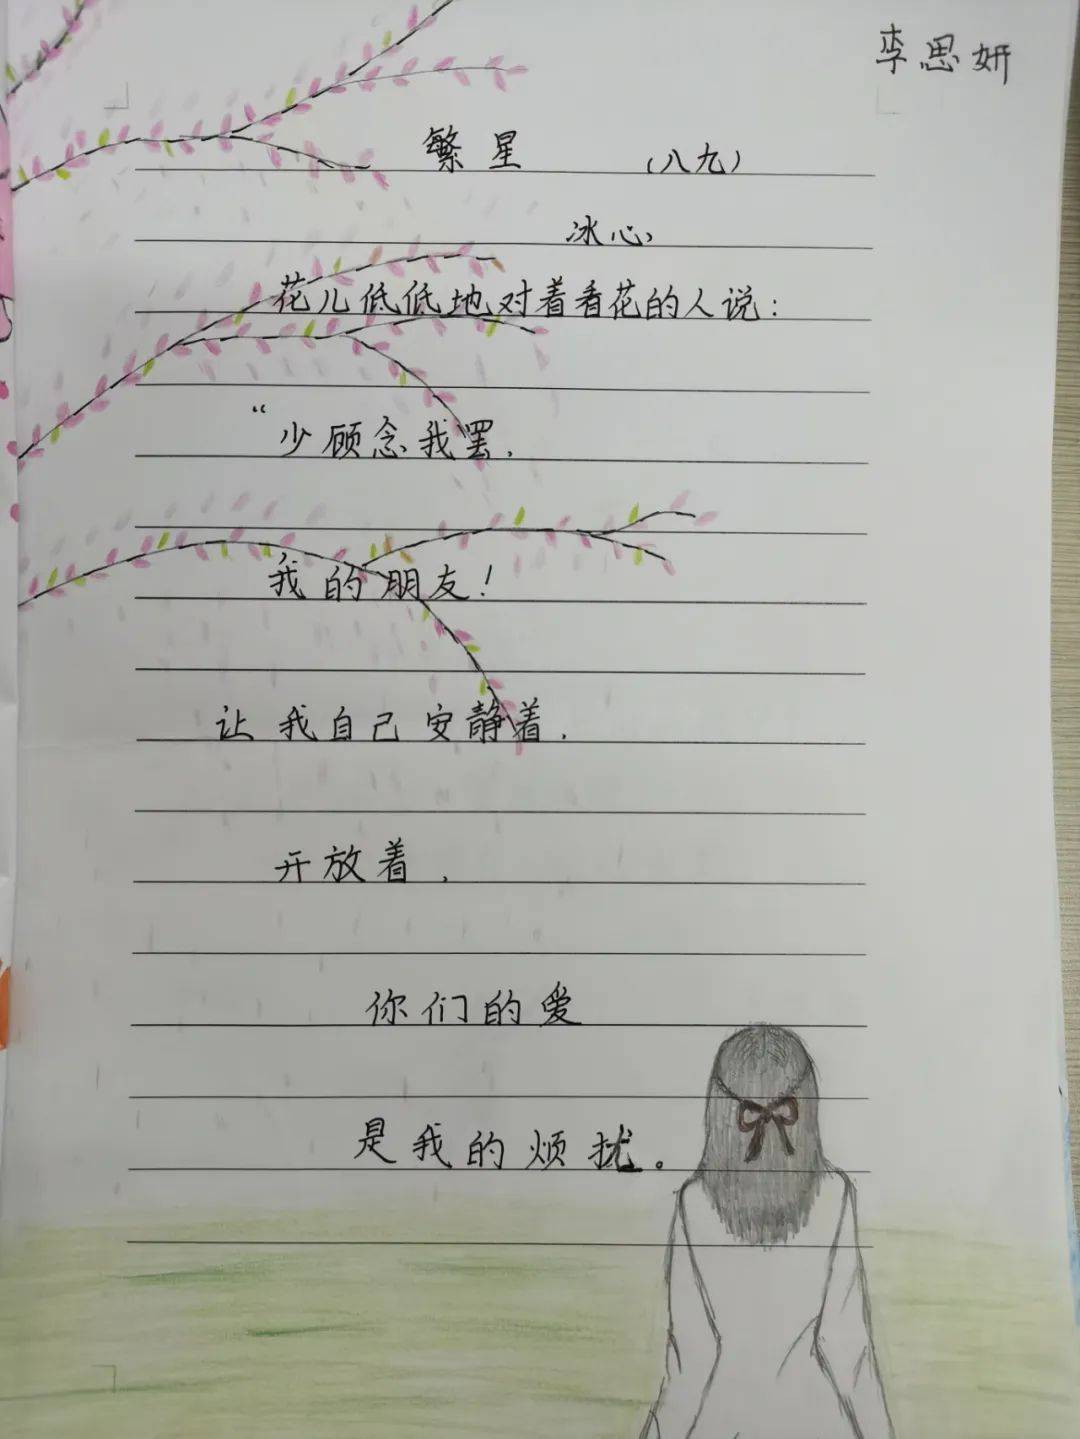 李思妍
繁星 （八九）
冰心
花儿低低地对着看花的人说：
“少顾念我罢，
我的朋友！
让我自己安静着，
开放着，
你们的爱
是我的烦扰。